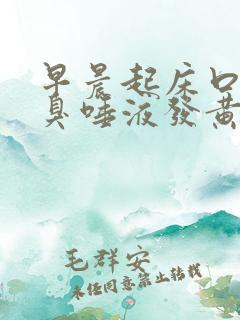 早晨起床口
臭唾液發黃
毛群安
未任同意禁止转载